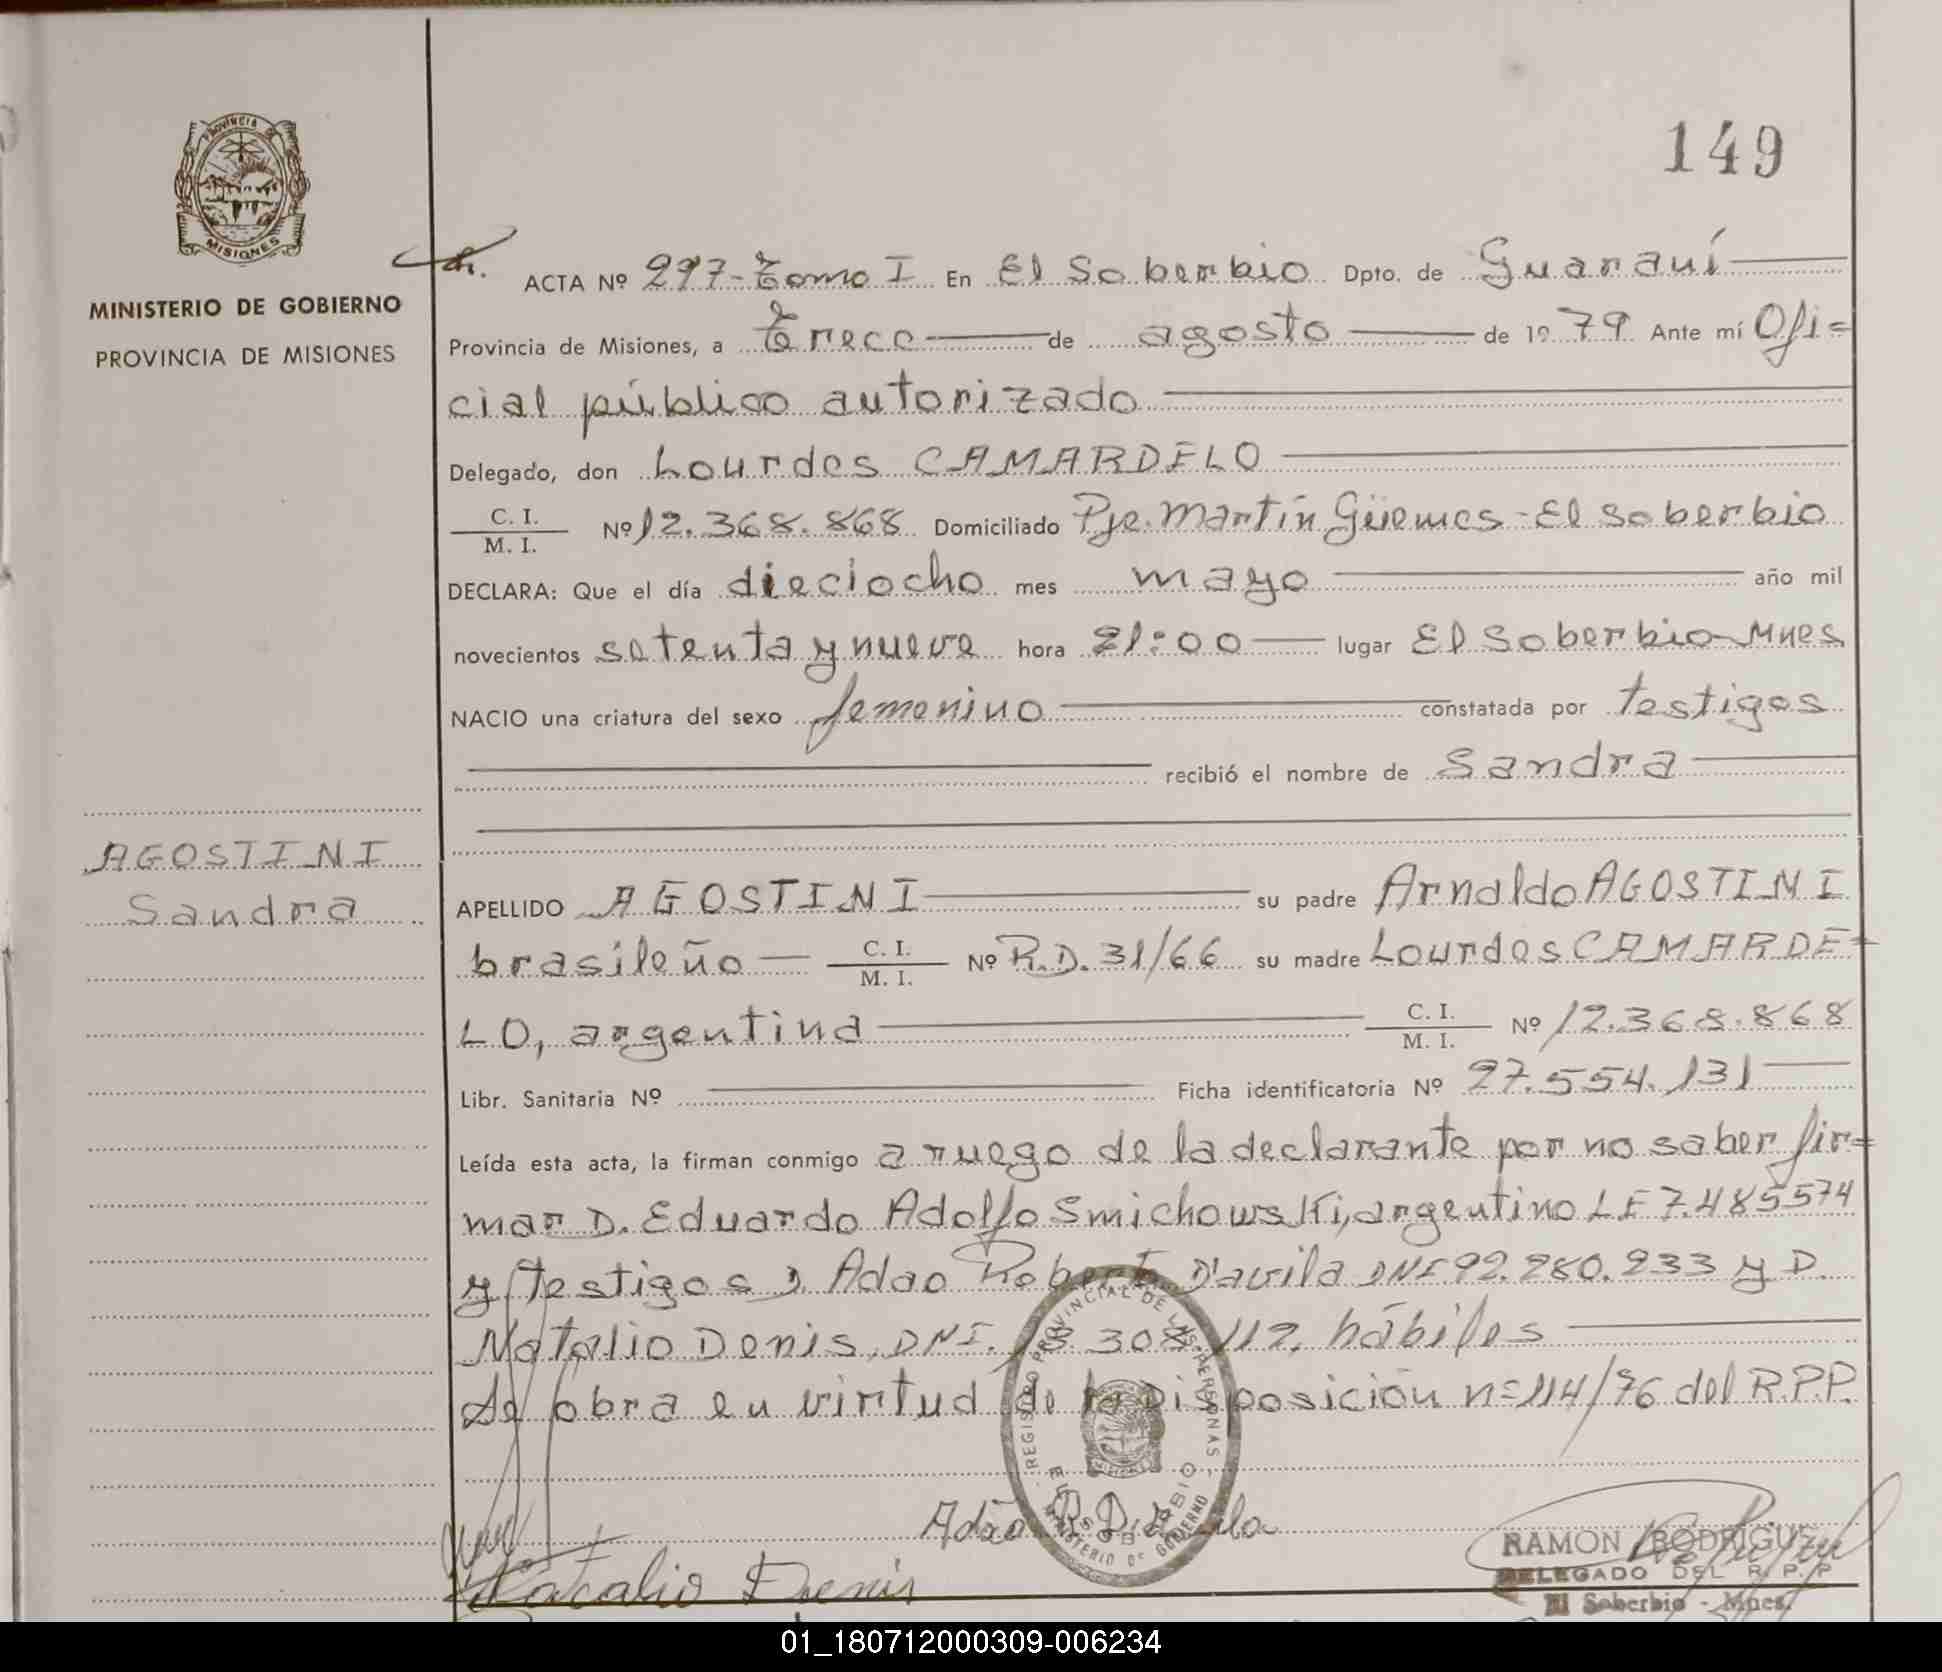 149
PROVINCIA DE
MISIONES
MINISTERIO DE GOBIERNO
PROVINCIA DE MISIONES
ACTA Nº 297-Tomo I En El Soberbio Dpto. de Guaraní
Provincia de Misiones, a trece de agosto de 1979 Ante mí Ofi=
cial público autorizado
Delegado, don Lourdes CAMARDELO
C. I.
M. I. Nº 12.368.868 Domiciliado Pje. Martín Güemes - El Soberbio
DECLARA: Que el día dieciocho mes mayo año mil
novecientos setenta y nueve hora 21:00 lugar El Soberbio-Mnes
NACIO una criatura del sexo femenino constatada por testigos
recibió el nombre de Sandra
AGOSTINI
Sandra
APELLIDO AGOSTINI su padre Arnaldo AGOSTINI
brasileño C. I. M. I. Nº R.D. 31/66 su madre Lourdes CAMARDE=
LO, argentina C. I. M. I. Nº 12.368.868
Libr. Sanitaria Nº Ficha identificatoria Nº 27.554.131
Leída esta acta, la firman conmigo a ruego de la declarante por no saber fir=
mar D. Eduardo Adolfo Smichowski, argentino LE 7.485574
y testigos D. Adao Robert D'avila DNI 92.280.233 y D.
Natalio Denis, DNI. 18.308.112, hábiles
Se obra en virtud de la Disposición n=114/76 del R.P.P.
REGISTRO PROVINCIAL DE LAS PERSONAS
EL SOBERBIO
MINISTERIO DE GOBIERNO
Adão R. D'avila
Natalio Denis
RAMON RODRIGUEZ
DELEGADO DEL R. P. P
El Soberbio - Mnes.
01_180712000309-006234